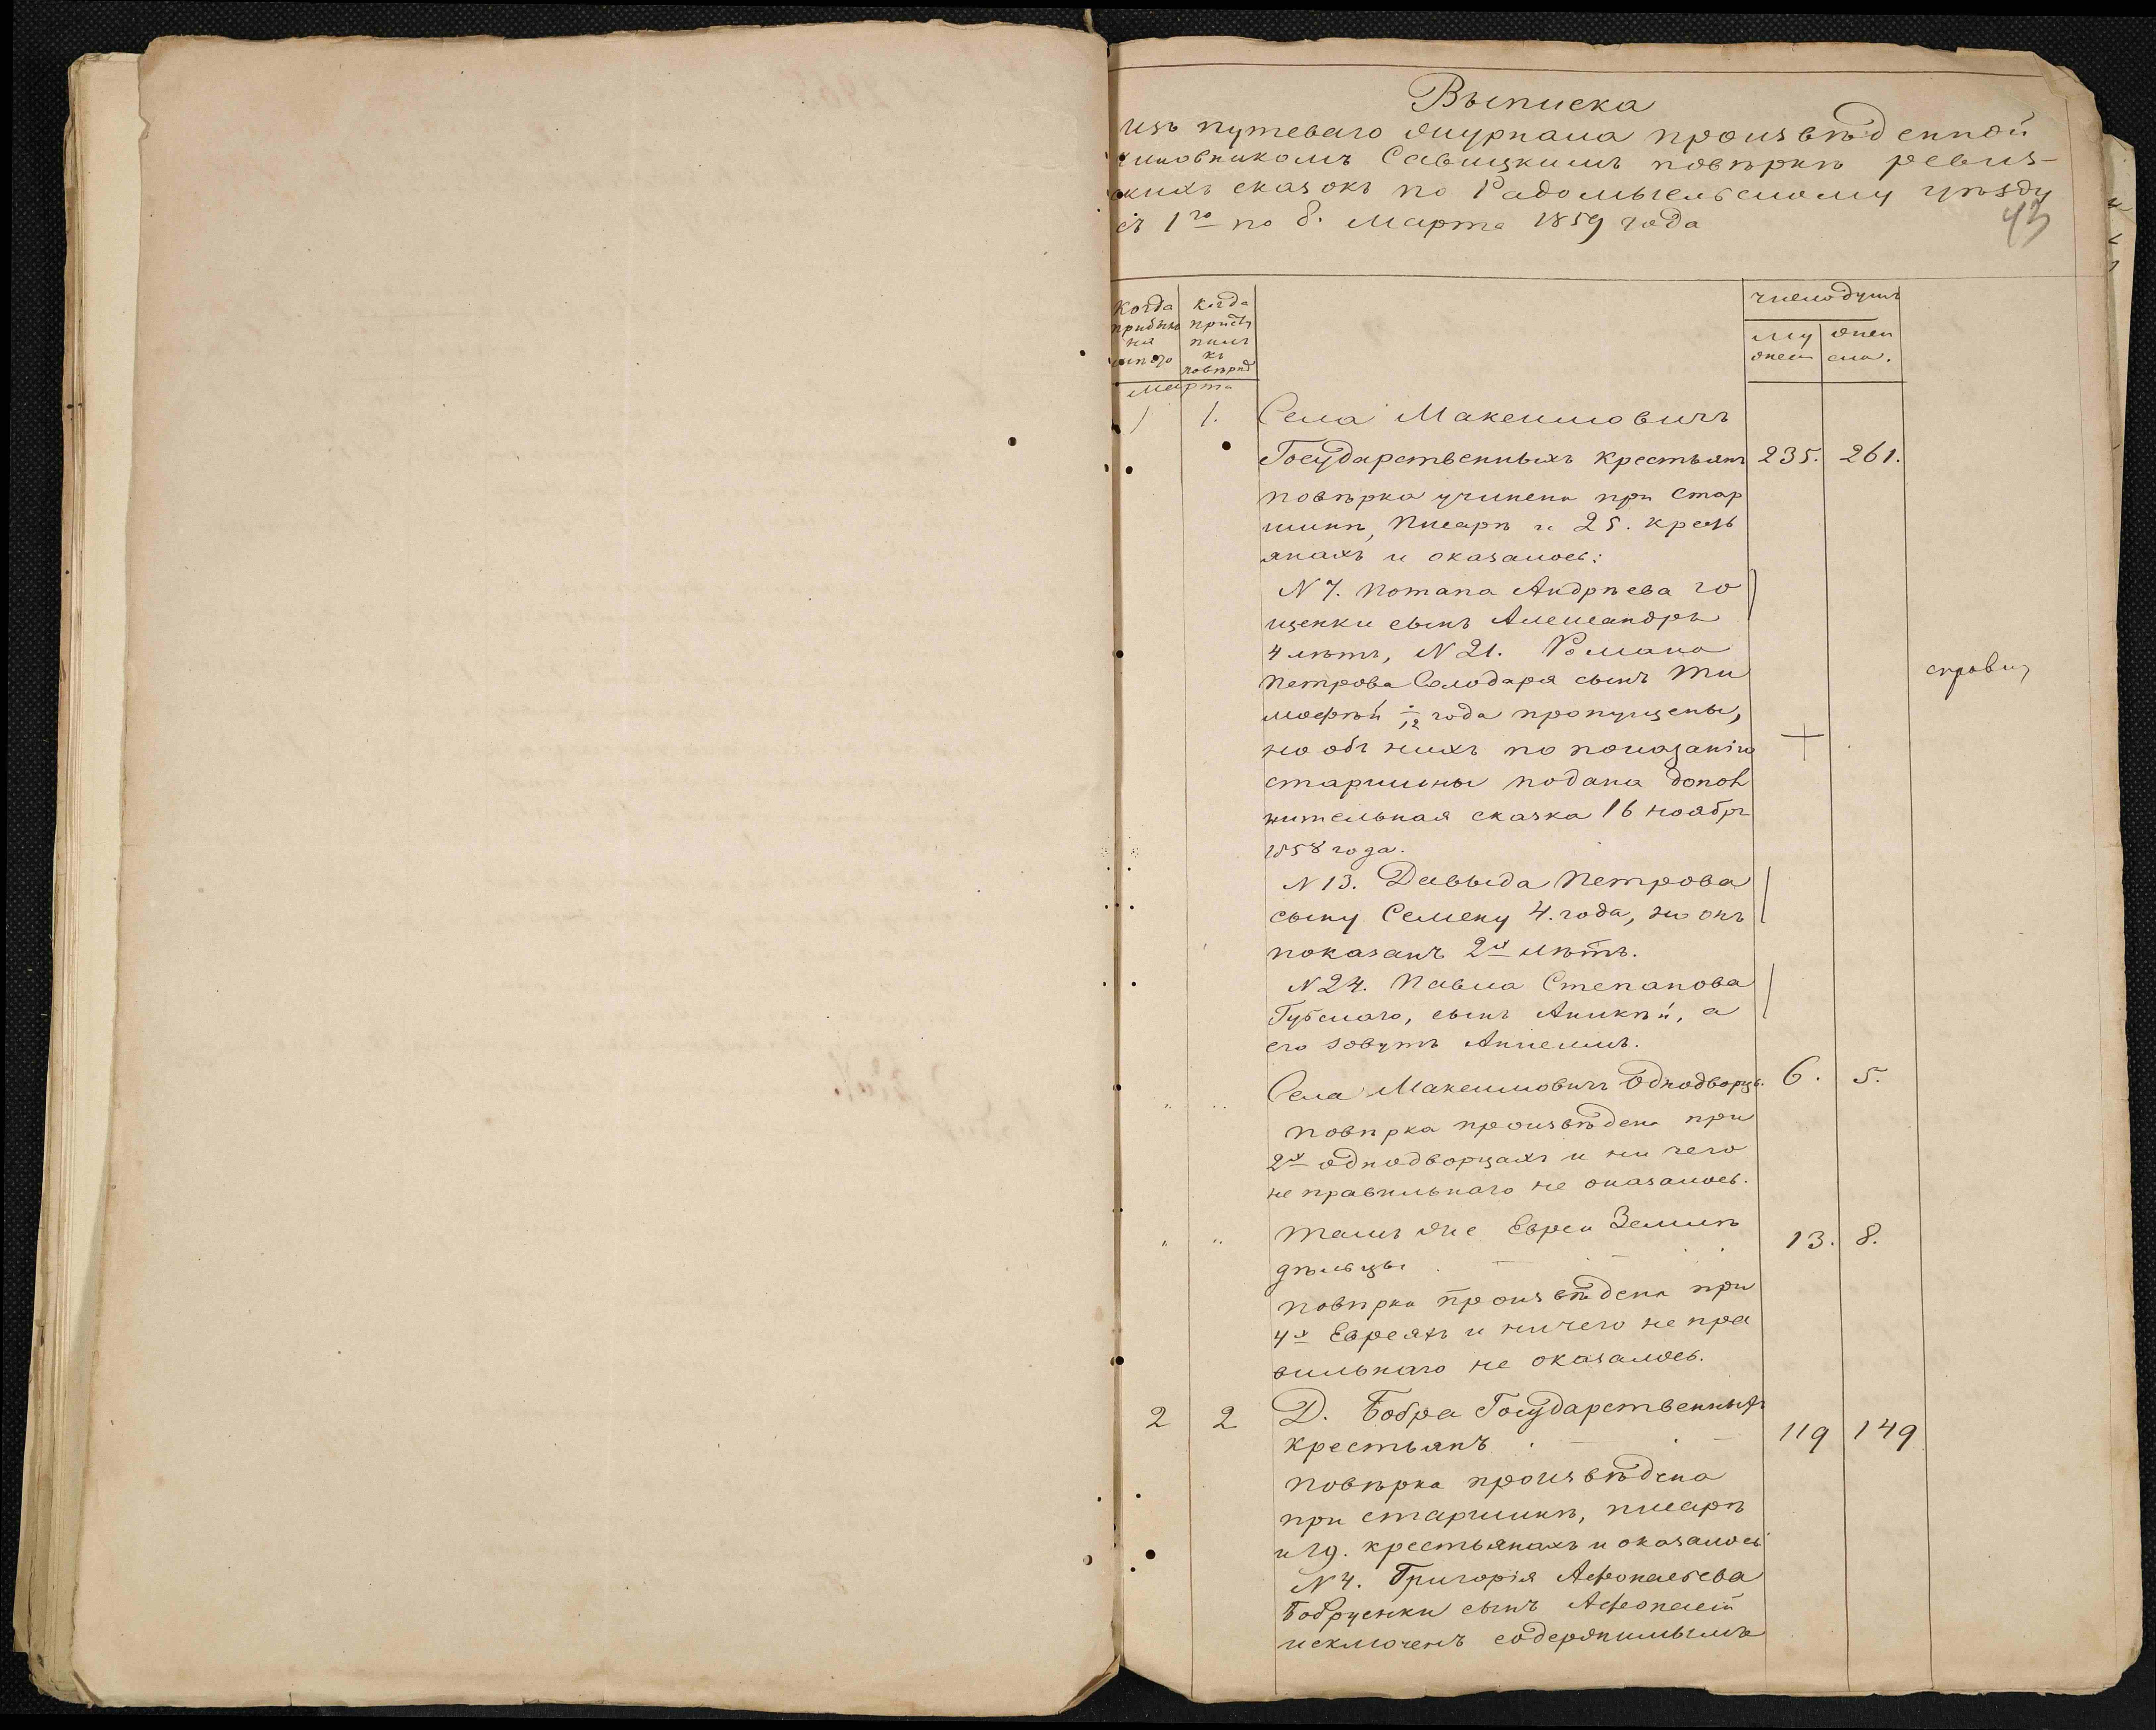 Выписка
изъ путеваго журнала произвѣденной
чиновникомъ Савицкимъ повѣркѣ ревиз-
скихъ сказокъ по Радомысльскому уѣзду
съ 1го по 8. Марта 1859 года
43
Когда прибылъ на мѣсто
Когда присту пилъ къ повѣркѣ
число душъ
му жеск
жен ска.
Марта
1 1. Села Максимовичъ
Государственныхъ крестьянъ 235. 261.
повѣрка учинена при стар
шинѣ, писарѣ и 25. кресть
янахъ и оказалось:
N 7. Потапа Андрѣева Го
щенки сынъ Александръ
4 лѣтъ, N 21. Романа
Петрова Солодаря сынъ Ти
мофѣй /12 года пропущены,
но объ нихъ по показанію
старшины подана допол
нительная сказка 16 ноября
1858 года.
N 13. Давыда Петрова
сыну Семену 4. года, но онъ
показанъ 2х лѣтъ.
N 24. Павла Степанова
Губскаго, сынъ Аникѣй, а
его зовутъ
Села Максимовичъ Однодворцъ. 6. 5.
повѣрка произвѣдена при
2х однодворцахъ и ни чего
не правильнаго не оказалось.
" " Тамъ же Евреи Земле
дѣльцы 13. 8.
повѣрка произвѣдена при
4х Евреяхъ и ничего не пра
вильнаго не оказалось.
2 2 Д. Бобра Государственныхъ
крестьянъ 119 149
повѣрка произвѣдена
при старшинѣ, писарѣ
и 19. крестьянахъ и оказалось
N 4. Григорія Афонасьева
Бобруенки сынъ Афонасій
исключенъ содержимымъ